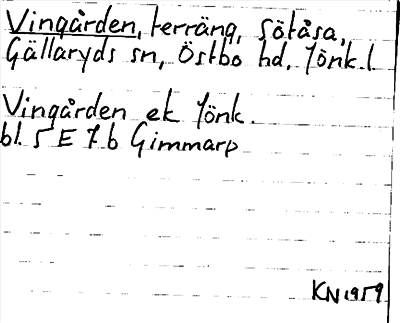 Vingården, terräng, Sötåsa,
Gällaryds sn, Östbo hd, Jönk. l
Vingården ek Jönk.
bl. 5 E 7 b Gimmarp
KN 1959